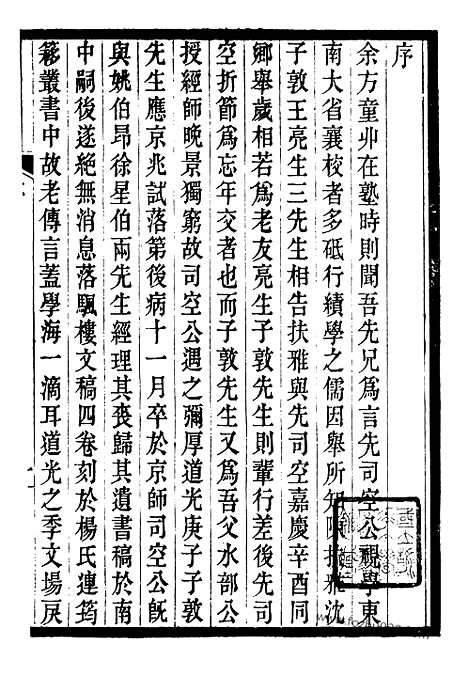 序
余方童丱在塾時則聞吾先兄爲言先司空公視學東
南大省襄校者多砥行績學之儒因舉所知陳扶雅沈
子敦王亮生三先生相告扶雅與先司空嘉慶辛酉同
鄉舉歲相若爲老友亮生子敦先生則輩行差後先司
空折節爲忘年交者也而子敦先生又爲吾父水部公
授經師晚景獨窮故司空公遇之彌厚道光庚子子敦
先生應京兆試落第後病十一月卒於京師司空公旣
與姚伯昂徐星伯兩先生經理其喪歸其遺書稿於南
中嗣後遂絕無消息落颿樓文稿四卷刻於楊氏連筠
簃叢書中故老傳言蓋學海一滴耳道光之季文場戾